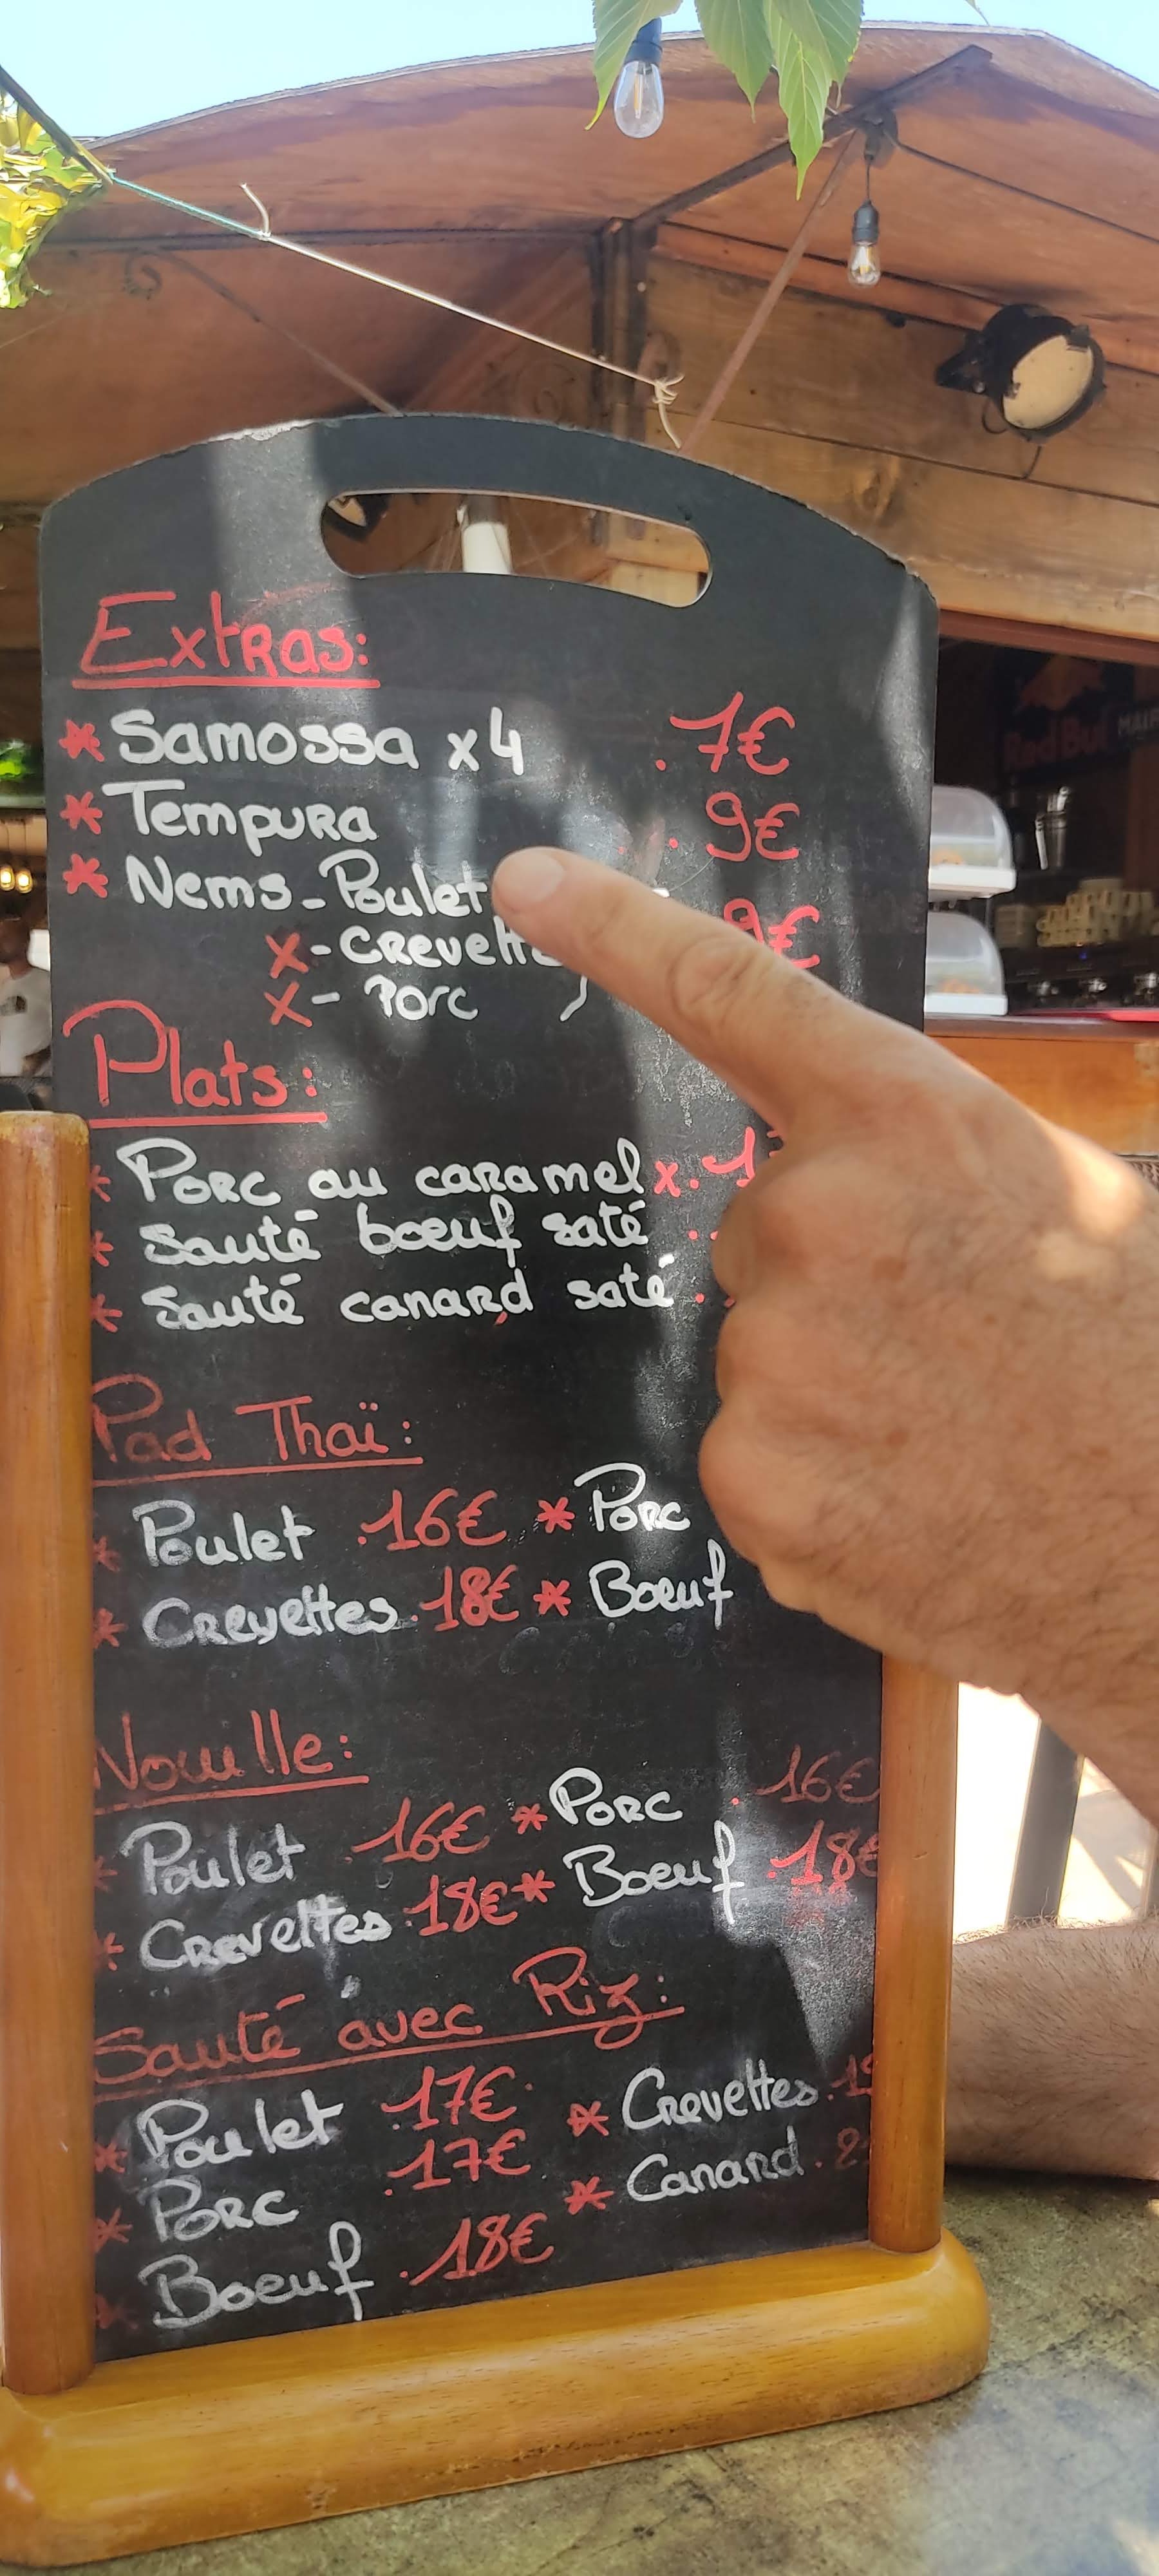 Extras:
* Samossa x4 . 7€
* Tempura . . 9€
* Nems - Poulet
x - Crevette 9€
x - Porc )
Plats:
* Porc au caramel x .
* Sauté boeuf saté . .
* Sauté canard saté . .
Pad Thaï:
* Poulet .16€ * Porc
* Crevettes .18€ * Boeuf
Nouille:
* Poulet .16€ * Porc . 16€
* Crevettes .18€ * Boeuf .18€
Sauté avec Riz:
* Poulet .17€ * Crevettes .
* Porc .17€ * Canard .
* Boeuf .18€
Red Bull